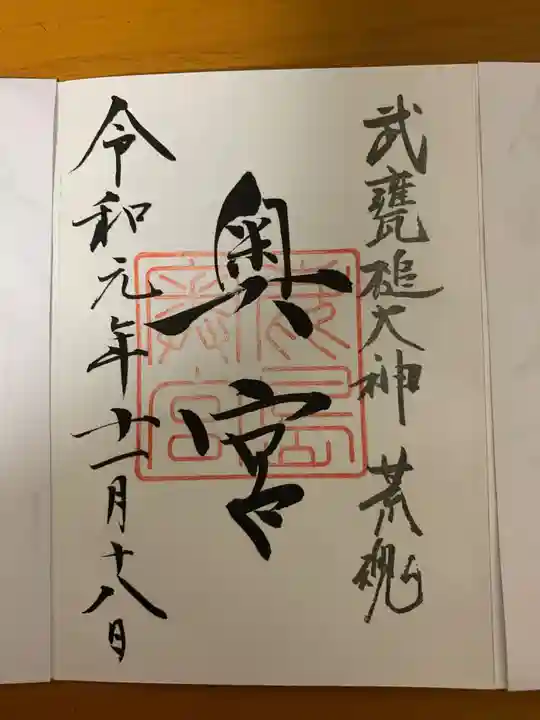 武甕槌大神 荒魂
奥宮
令和元年十一月十八日